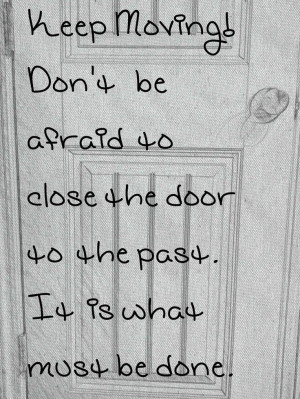 Keep Moving!
Don't be
afraid to
close the door
to the past.
It is what
must be done.